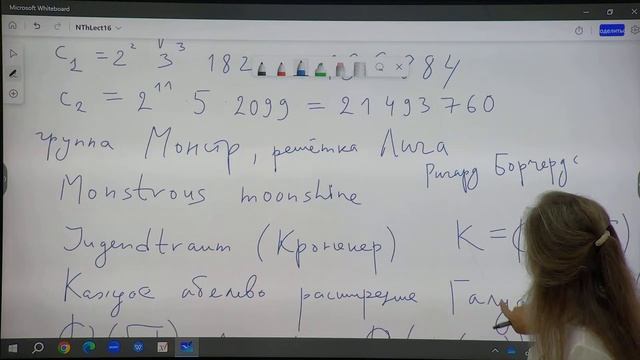 Microsoft Whiteboard
NThLect16
c₁ = 2² 3³ 182
384
c₂ = 2¹¹ 5 2099 = 21 493 760
группа Монстр, решётка Лича
Ричард Борчердс
Monstrous moonshine
Jugendtraum (Кронекер) K =
Каждое абелево расширение